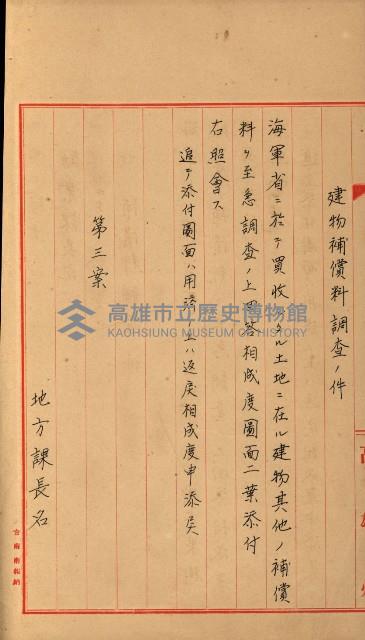 建物補償料調査ノ件
海軍省ニ於テ買收シタル土地ニ在ル建物其他ノ補償
料ヲ至急調査ノ上回答相成度圖面二葉添付
右照會ス
追テ添付圖面ハ用濟ノ上ハ返戾相成度申添候
第三案
地方課長名
高雄市立歷史博物館
KAOHSIUNG MUSEUM OF HISTORY
高雄州